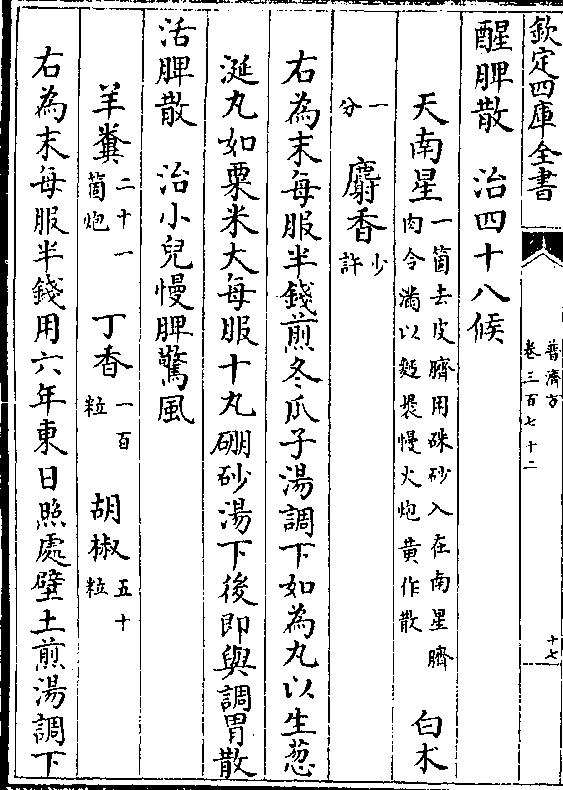 欽定四庫全書
普濟方
卷三百七十二
十七
醒脾散　治四十八候
天南星一箇去皮臍用硃砂入在南星臍
肉令滿以麪褁慢火炮黄作散　白术
一分　麝香少許
右為末每服半錢煎冬瓜子湯調下如為丸以生葱
涎丸如粟米大每服十丸硼砂湯下後即與調胃散
活脾散　治小兒慢脾驚風
羊糞二十一箇炮　丁香一百粒　胡椒五十粒
右為末每服半錢用六年東日照處壁土煎湯調下